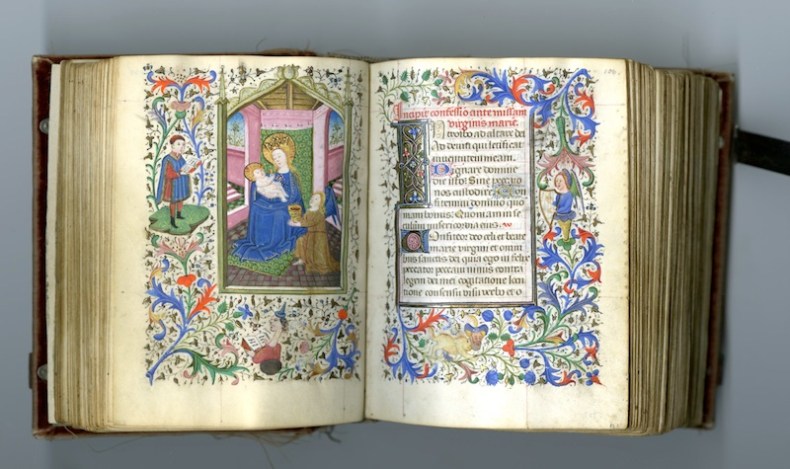 Incipit confessio ante missam
virginis marie.
INtroibo ad altare dei
Ad deum qui letificat
iuuentutem meam.
Dignare domine
die isto: Sine peccato
nos custodire Con
fitemini domino quo
niam bonus: Quoniam in se
culum misericordia eius.
Confiteor deo celi et beate
marie virgini et omni
bus sanctis dei quia ego infelix
peccator peccaui nimis contra
legem dei mei cogitatione locu
tione consensu visu verbo et o